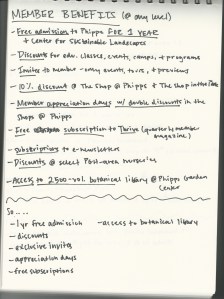 MEMBER BENEFITS (@ any level)
- Free admission to Phipps FOR 1 YEAR
+ Center for Sustainable Landscapes
- Discounts for edu. classes, events, camps, + programs
- Invites to member-only events, tours, + previews
- 10% discount @ The Shop @ Phipps + The Shop in the
- Member appreciation days w/ double discounts in the
Shop @ Phipps
- Free subscription to Thrive (quarterly member
magazine)
- subscriptions to e-newsletters
- Discounts @ select area nurseries
- Access to 2,500-vol. botanical library @ Phipps Garden
Center
So....
- 1 yr free admission - access to botanical library
- discounts
- exclusive invites
- appreciation days
- free subscriptions